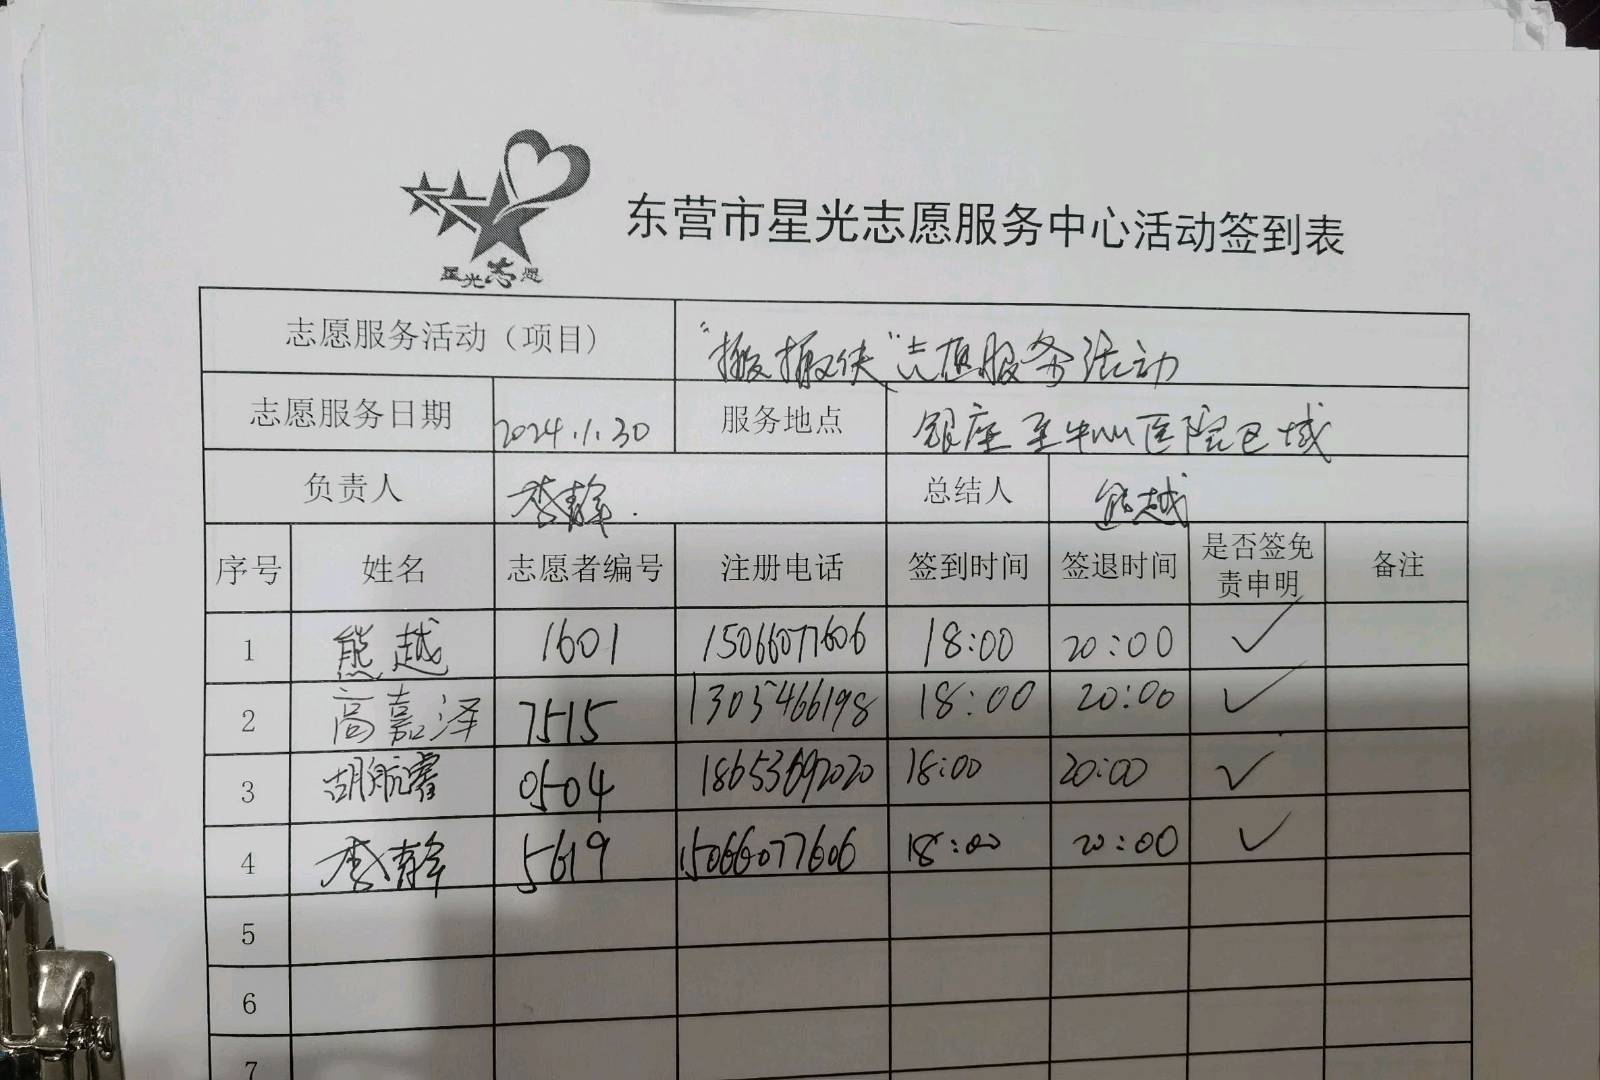 星光志愿
东营市星光志愿服务中心活动签到表
志愿服务活动（项目） “搬搬侠”志愿服务活动
志愿服务日期 2024.1.30 服务地点 银座至中心医院区域
负责人 李静 总结人 熊越
序号 姓名 志愿者编号 注册电话 签到时间 签退时间 是否签免责申明 备注
1 熊越 1601 15066077606 18:00 20:00 ✓
2 高嘉泽 7515 1305466198 18:00 20:00 ✓
3 胡航睿 0504 18653692020 18:00 20:00 ✓
4 李静 5619 15066077606 18:00 20:00 ✓
5
6
7